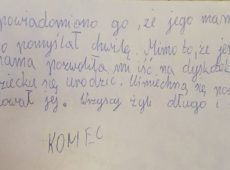 powiadomiono go, że jego mam
o pomyślał chwilę. Mimo to, że je
mama pozwoliła mi iść na dyskotek
dziecku się urodzić. Uśmiechną się
ował jej. Wszyscy żyli długo i
KONIEC